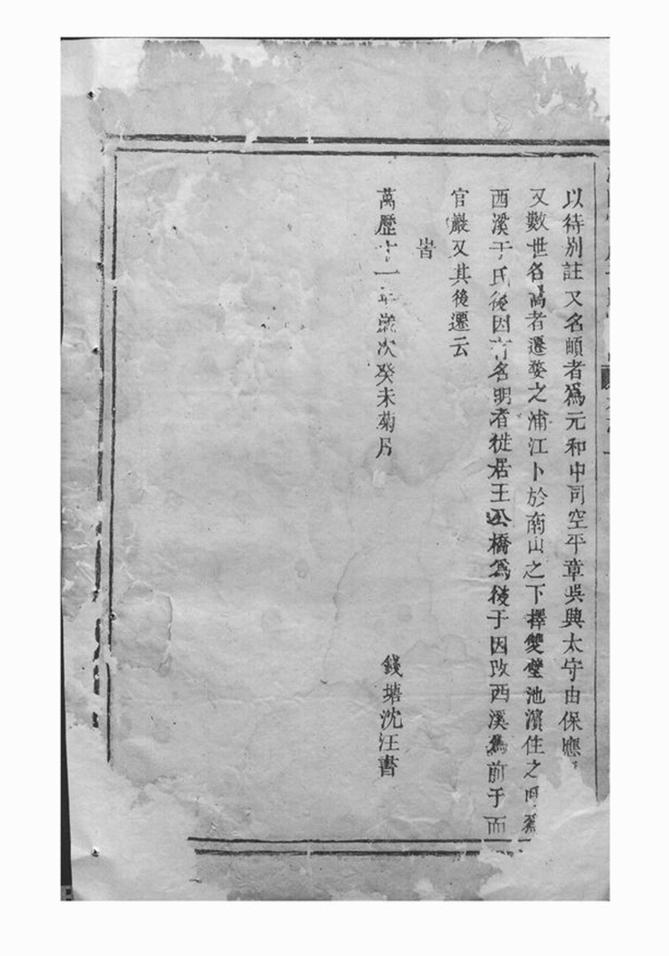 以待別註又名頔者爲元和中司空平章吳興太守由保應
又數世名萬者遷婺之浦江卜於南山之下擇雙璧池濱住之
西溪于氏後因有名明者徙居王公橋爲後于因改西溪爲前于而
官巖又其後遷云
旹
萬歷十一年歲次癸未菊月
錢塘沈汪書